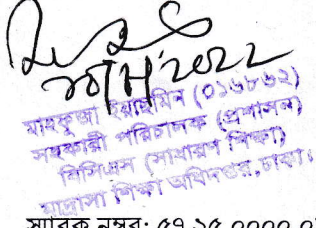 মাহফুজা ইয়াছমিন (০১৬৮৬২)
সহকারী পরিচালক (প্রশাসন)
বিসিএস (সাধারণ শিক্ষা)
মাদ্রাসা শিক্ষা অধিদপ্তর, ঢাকা।
স্মারক নম্বর: ৫৭.২৫.০০০০.০